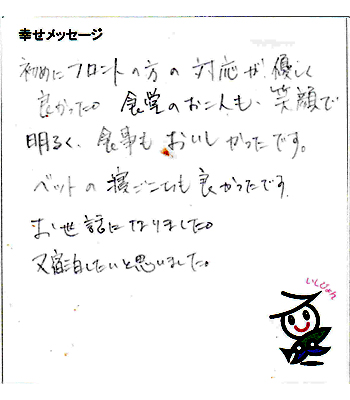 幸せメッセージ
初めにフロントの方の対応が優しく
良かった。食堂のお二人も、笑顔で
明るく、食事もおいしかったです。
ベットの寝ごこちも良かったです
お世話になりました。
又宿泊したいと思いました。